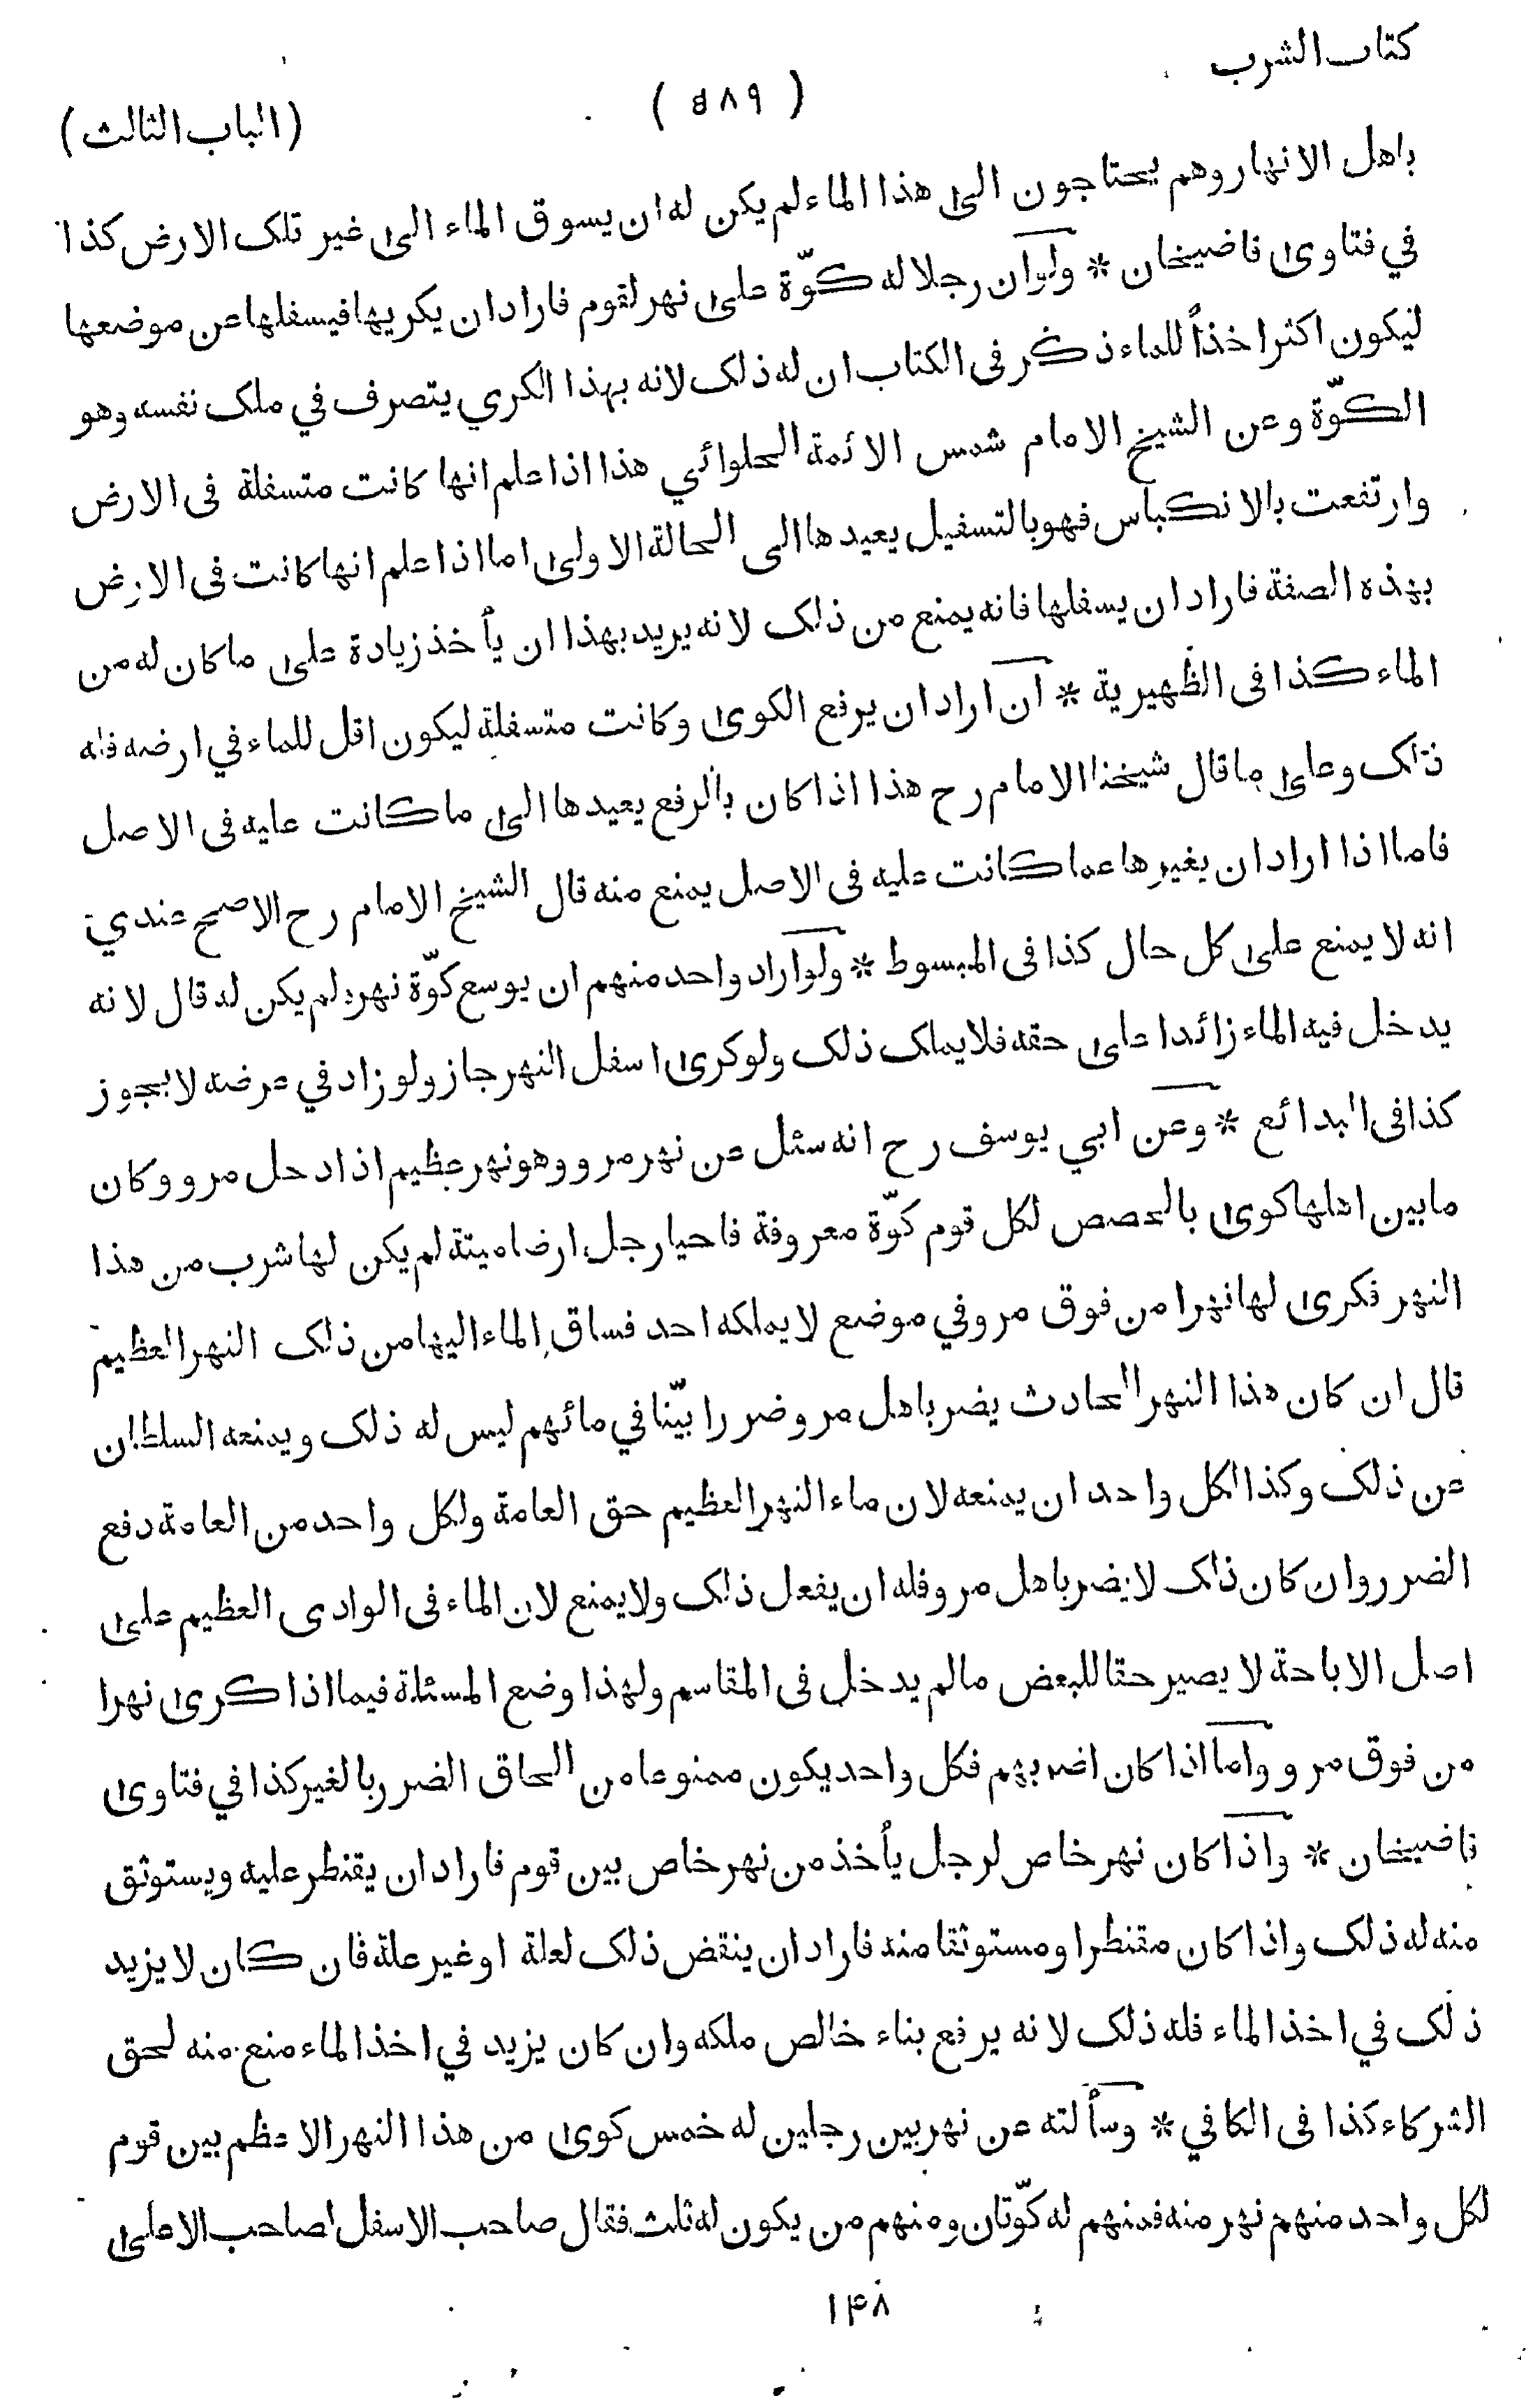 كتاب الشرب
( ٥٨٩ )
(الباب الثالث)
باهل الانهار وهم يحتاجون الى هذا الماء لم يكن له ان يسوق الماء الى غير تلك الارض كذا
في فتاوى قاضيخان * ولو ان رجلا له كوّة على نهر لقوم فاراد ان يكريها فيسفلها عن موضعها
ليكون اكثر اخذاً للماء ذكر فى الكتاب ان له ذلك لانه بهذا الكري يتصرف في ملك نفسه وهو
الكوّة وعن الشيخ الامام شمس الائمة الحلوائي هذا اذا علم انها كانت متسفلة فى الارض
وارتفعت بالانكباس فهو بالتسفيل يعيدها الى الحالة الاولى اما اذا علم انها كانت فى الارض
بهذه الصفة فاراد ان يسفلها فانه يمنع من ذلك لانه يريد بهذا ان يأخذ زيادة على ما كان له من
الماء كذا فى الظهيرية * ان اراد ان يرفع الكوى وكانت متسفلة ليكون اقل للماء في ارضه فله
ذلك وعلى ما قال شيخنا الامام رح هذا اذا كان بالرفع يعيدها الى ما كانت عليه فى الاصل
فاما اذا اراد ان يغيرها عما كانت عليه فى الاصل يمنع منه قال الشيخ الامام رح الاصح عندي
انه لا يمنع على كل حال كذا فى المبسوط * ولو اراد واحد منهم ان يوسع كوّة نهره لم يكن له قال لانه
يدخل فيه الماء زائدا على حقه فلا يملك ذلك ولو كرى اسفل النهر جاز ولو زاد في عرضه لا يجوز
كذا فى البدائع * وعن ابي يوسف رح انه سئل عن نهر مرو وهو نهر عظيم اذا دخل مرو وكان
ما بين اهلها كوى بالحصص لكل قوم كوّة معروفة فاحيا رجل ارضا ميتة لم يكن لها شرب من هذا
النهر فكرى لها نهرا من فوق مرو في موضع لا يملكه احد فساق الماء اليها من ذلك النهر العظيم
قال ان كان هذا النهر الحادث يضر باهل مرو ضررا بيّنا في مائهم ليس له ذلك ويمنعه السلطان
عن ذلك وكذا لكل واحد ان يمنعه لان ماء النهر العظيم حق العامة ولكل واحد من العامة دفع
الضرر وان كان ذلك لا يضر باهل مرو فله ان يفعل ذلك ولا يمنع لان الماء فى الوادى العظيم على
اصل الاباحة لا يصير حقا للبعض مالم يدخل فى المقاسم ولهذا وضع المسئلة فيما اذا كرى نهرا
من فوق مرو واما اذا كان اضر بهم فكل واحد يكون ممنوعا من الحاق الضرر بالغير كذا في فتاوى
قاضيخان * واذا كان نهر خاص لرجل يأخذ من نهر خاص بين قوم فاراد ان يقنطر عليه ويستوثق
منه له ذلك واذا كان مقنطرا ومستوثقا منه فاراد ان ينقض ذلك لعلة او غير علة فان كان لا يزيد
ذلك في اخذ الماء فله ذلك لانه يرفع بناء خالص ملكه وان كان يزيد في اخذ الماء منع منه لحق
الشركاء كذا فى الكافي * وسألته عن نهر بين رجلين له خمس كوى من هذا النهر الاعظم بين قوم
لكل واحد منهم نهر منه فمنهم له كوّتان ومنهم من يكون له ثلث فقال صاحب الاسفل لصاحب الاعلى
١۴٨